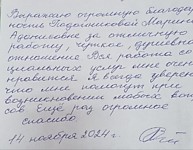 Выражаю огромную благодар
ность Подолянниковой Марине
Адольевне за отличную
работу, чуткое, душевное
отношение. Вся работа со
циальных услуг мне очень
нравится я всегда уверена
что мне помогут при
возникновении любых воп
сов ещё раз огромное
спасибо
14 ноября 2024 г.